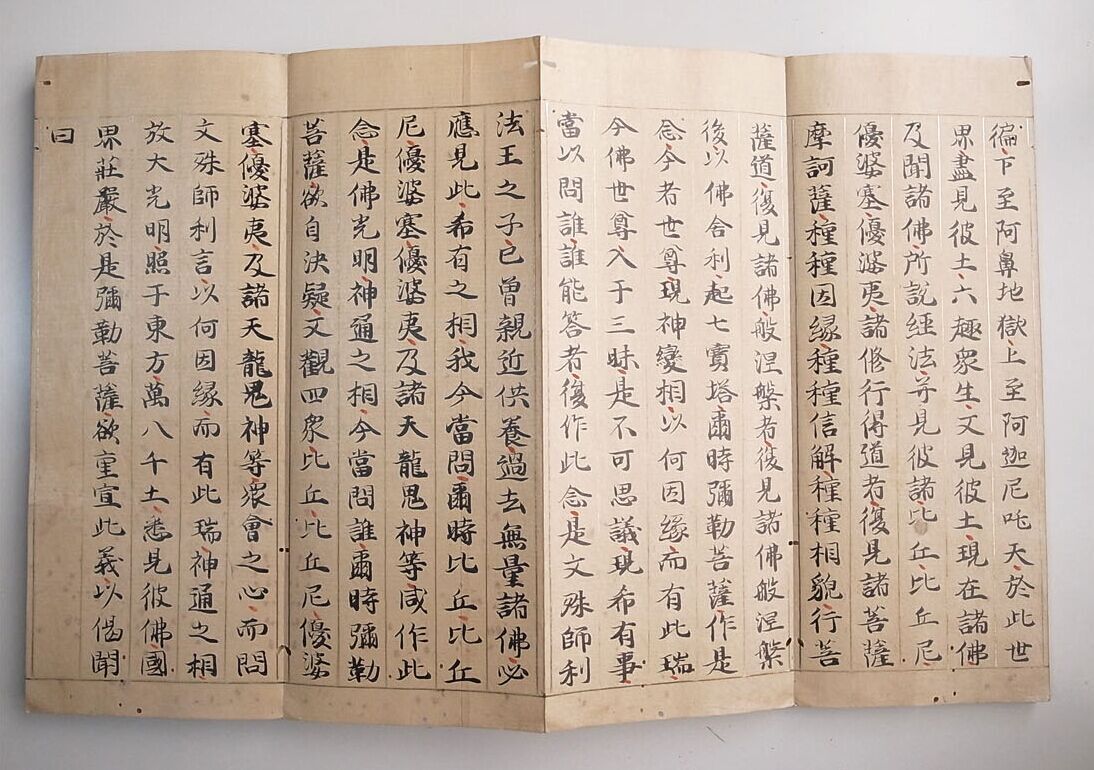 徧下至阿鼻地獄上至阿迦尼吒天於此世
界盡見彼土六趣衆生又見彼土現在諸佛
及聞諸佛所說經法并見彼諸比丘比丘尼
優婆塞優婆夷諸修行得道者復見諸菩薩
摩訶薩種種因緣種種信解種種相貌行菩
薩道復見諸佛般涅槃者復見諸佛般涅槃
後以佛舍利起七寶塔爾時彌勒菩薩作是
念今者世尊現神變相以何因緣而有此瑞
今佛世尊入于三昧是不可思議現希有事
當以問誰誰能答者復作此念是文殊師利
法王之子已曾親近供養過去無量諸佛必
應見此希有之相我今當問爾時比丘比丘
尼優婆塞優婆夷及諸天龍鬼神等咸作此
念是佛光明神通之相今當問誰爾時彌勒
菩薩欲自決疑又觀四衆比丘比丘尼優婆
塞優婆夷及諸天龍鬼神等衆會之心而問
文殊師利言以何因緣而有此瑞神通之相
放大光明照于東方萬八千土悉見彼佛國
界莊嚴於是彌勒菩薩欲重宣此義以偈問
曰